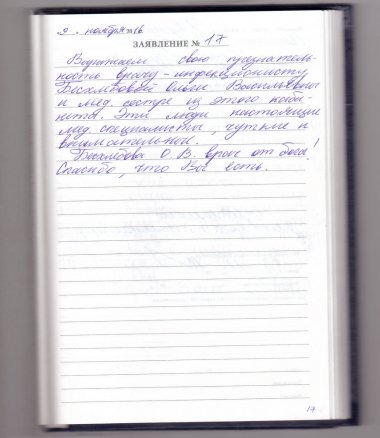 „9“ ноября 2016
ЗАЯВЛЕНИЕ № 17
Выражаем свою признатель-
ность врачу-инфекционисту
Бесхлебовой Ольге Васильевне
и мед. сестре из этого каби-
нета. Эти люди настоящие
мед. специалисты, чуткие и
внимательные.
Бесхлебова О. В. врач от бога!
Спасибо, что Вы есть.
17